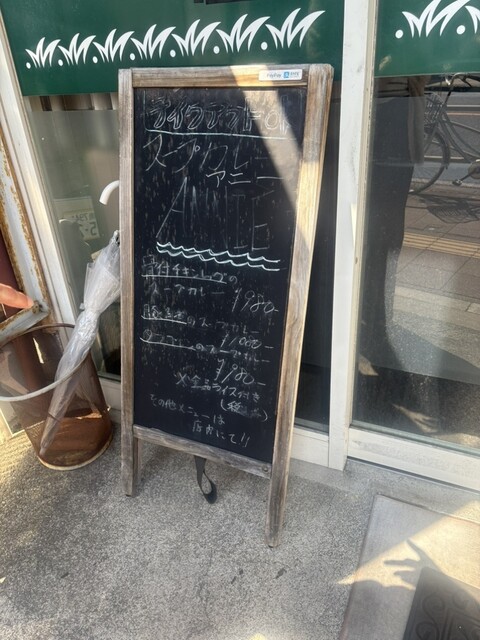 PayPay
テイクアウトOK
スープカレー
アニー
ANNIE
骨付チキンレッグの
スープカレー ¥980-
のスープカレー
¥1,080-
のスープカレー
¥980-
※全品ライス付き
その他メニューは
店内にて!!